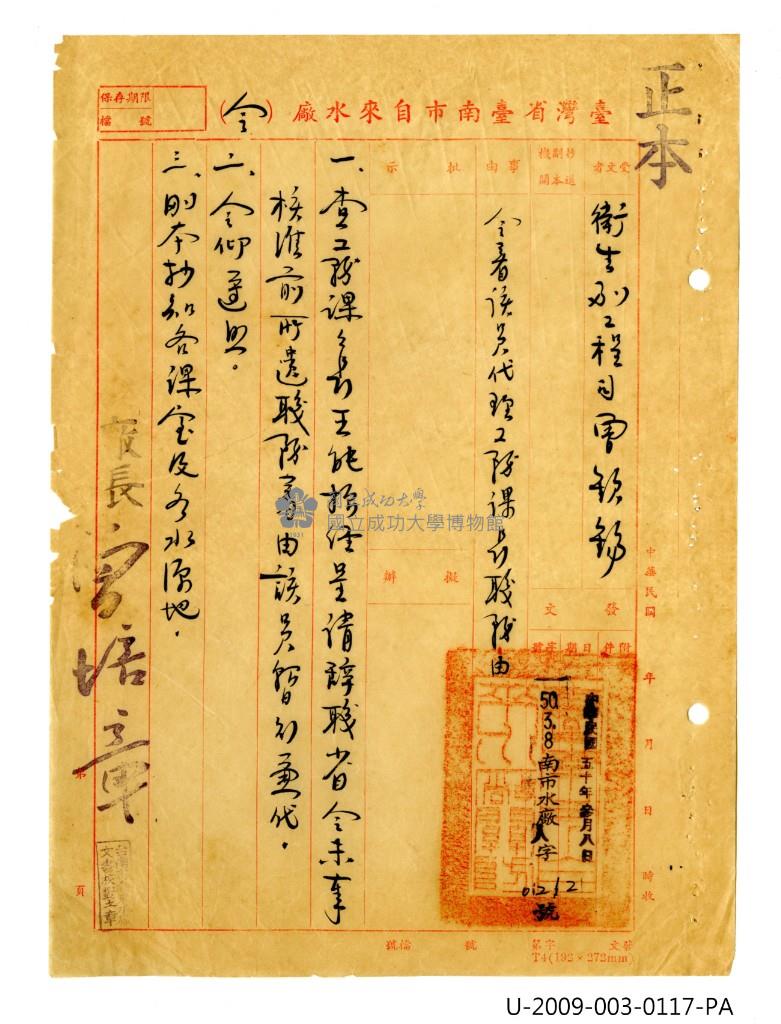 正本
臺灣省臺南市自來水廠（令）
保存期限
檔號
受文者
抄送副本機關
事由
批示
衛生副工程司曾欽錫
令著該員代理工務課長職務由
擬辦
發文
附件
日期
字號
中華民國 年 月 日 時收
中華民國五十年參月八日
50.3.8南市水廠人字
0212
號
一、查工務課長王能 經呈請辭職省令未奉
核准前所遺職務著由該員暫行兼代。
二、令仰遵照。
三、副本抄知各課室及各水源地。
廠長曾培章
第
頁
檔號
字第
號
T4(192×272mm)
國立成功大學
國立成功大學博物館
1931
U-2009-003-0117-PA